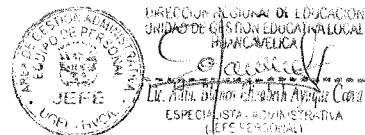 ÁREA DE GESTIÓN ADMINISTRATIVA
EQUIPO DE PERSONAL
JEFE
UGEL - HVCA.
DIRECCIÓN REGIONAL DE EDUCACIÓN
UNIDAD DE GESTIÓN EDUCATIVA LOCAL
HUANCAVELICA
Lic. Adm.
ESPECIALISTA ADMINISTRATIVA
(JEFE PERSONAL)